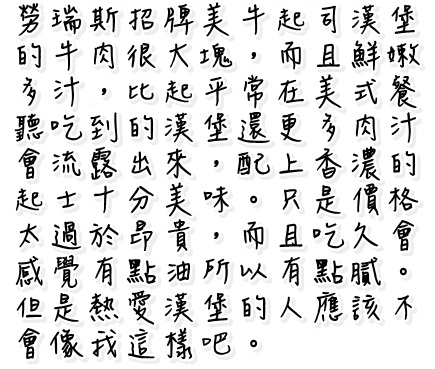 勞瑞斯招牌美牛起司漢堡
的牛肉很大塊，而且鮮嫩
多汁，比起平常在美式餐
聽吃到的漢堡還更多肉汁
會流露出來，配上香濃的
起士十分美味。只是價格
太過於昂貴，而且吃久會
感覺有點油所以有點膩。
但是熱愛漢堡的人應該不
會像我這樣吧。